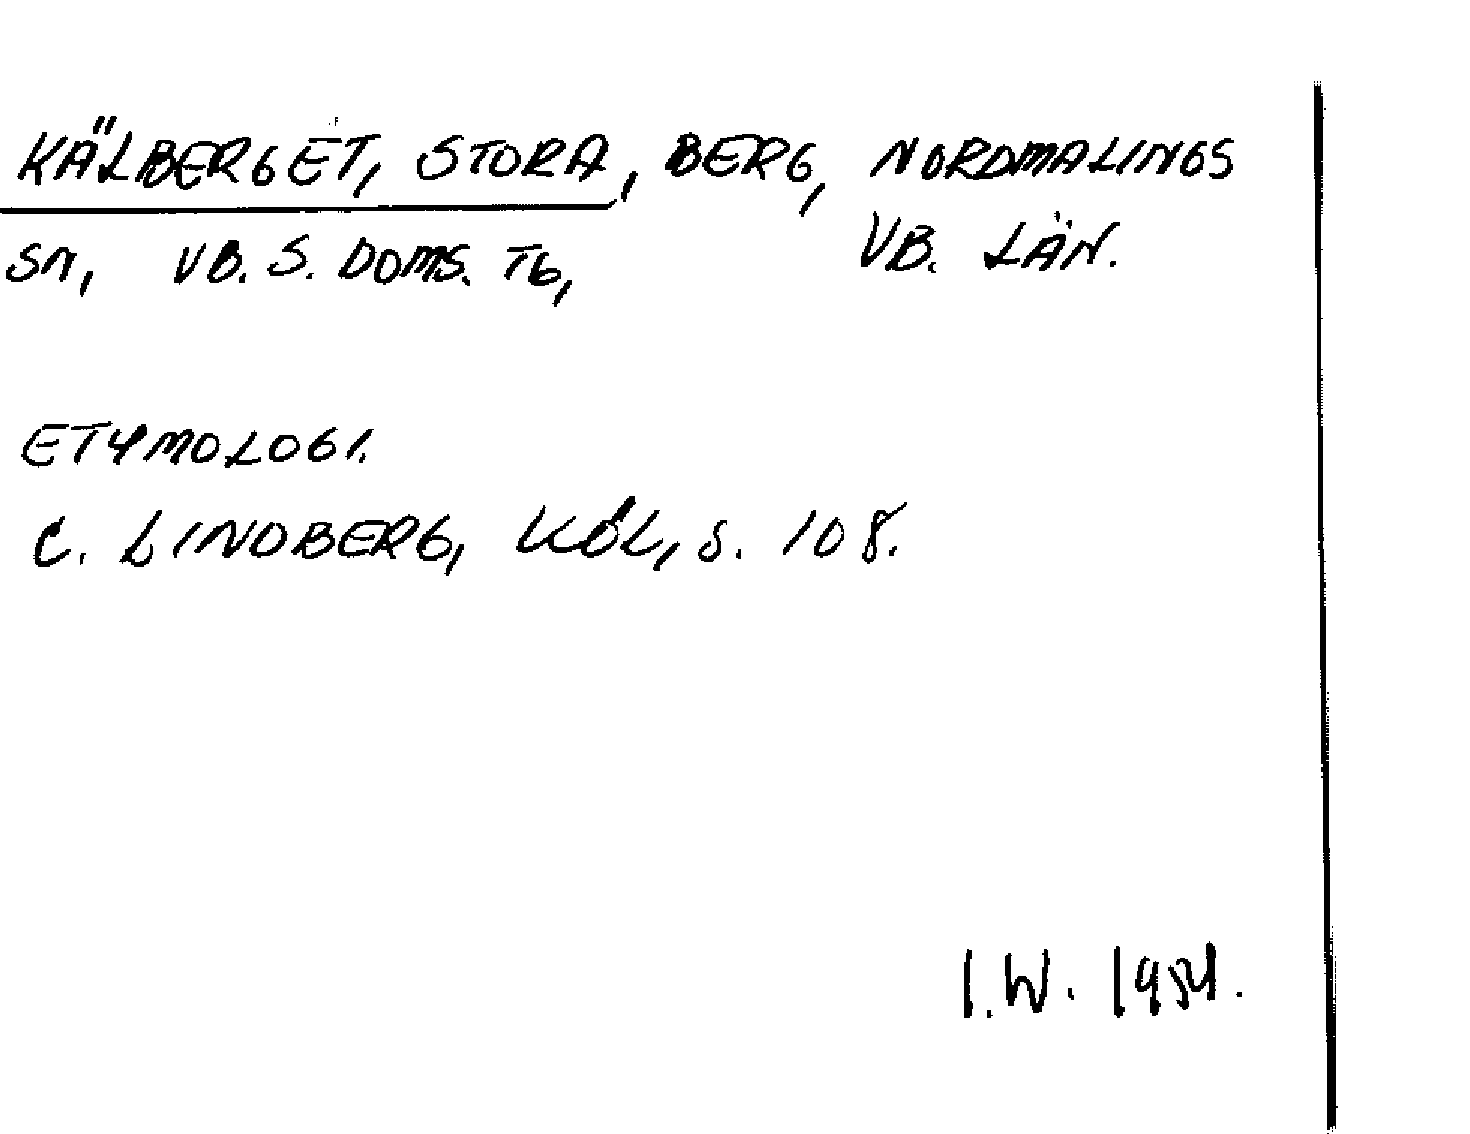 KÄLBERGET, STORA, BERG, NORDMALINGS
SN, VB. S. DOMS. TG, VB. LÄN.
ETYMOLOGI.
C. LINDBERG, KÖL, S. 108.
I.W. 1954.